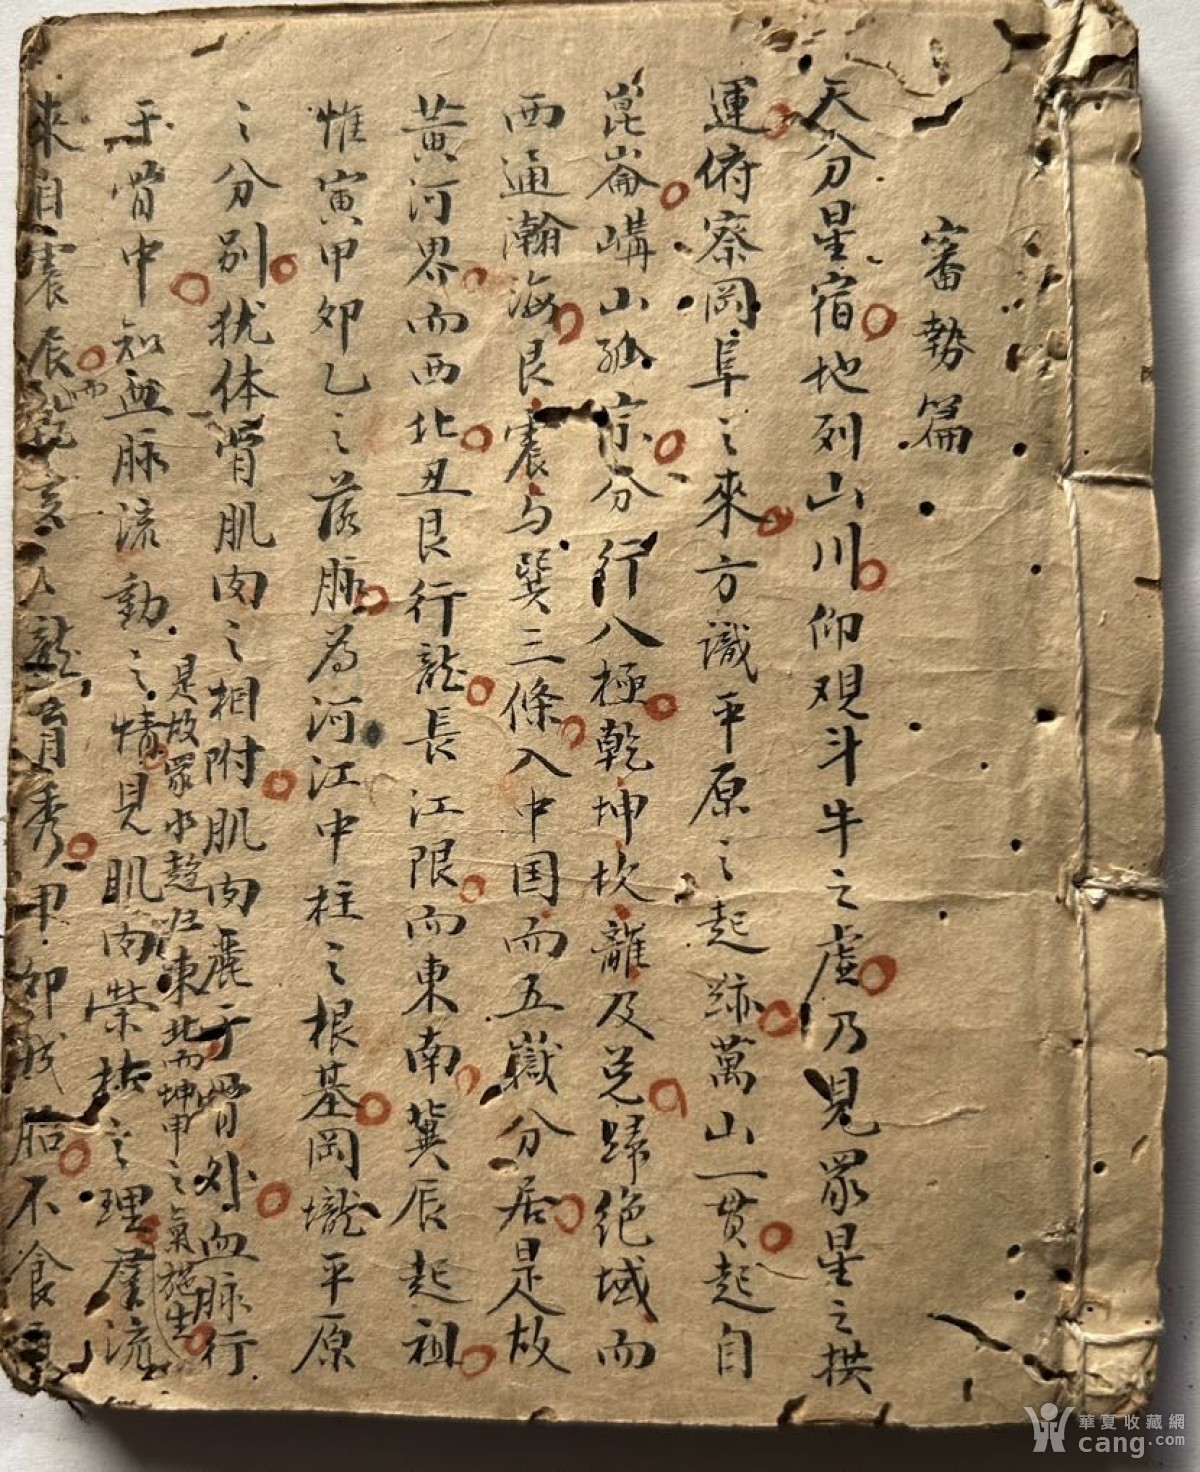 審勢篇
天分星宿地列山川仰观斗牛之虚乃見眾星之拱
運俯察岡阜之來方識平原之起跡萬山一貫起自
崑崙嶙山孤宗分行八極乾坤坎離及兑歸绝域而
西通瀚海艮震与巽三條入中国而五嶽分居是故
黄河界而西北丑艮行龍長江限而東南巽辰起祖
惟寅甲卯乙之落脉为河江中柱之根基岡壠平原
之分别犹体骨肌肉之相附肌肉麗于骨外血脉行
是故眾水趋归東北而坤申之氣施生
于骨中知血脉流動之情見肌肉荣枯之理君流
來自震辰而乾亥之龍育秀甲卯成胎不食
華夏收藏網
cang.com